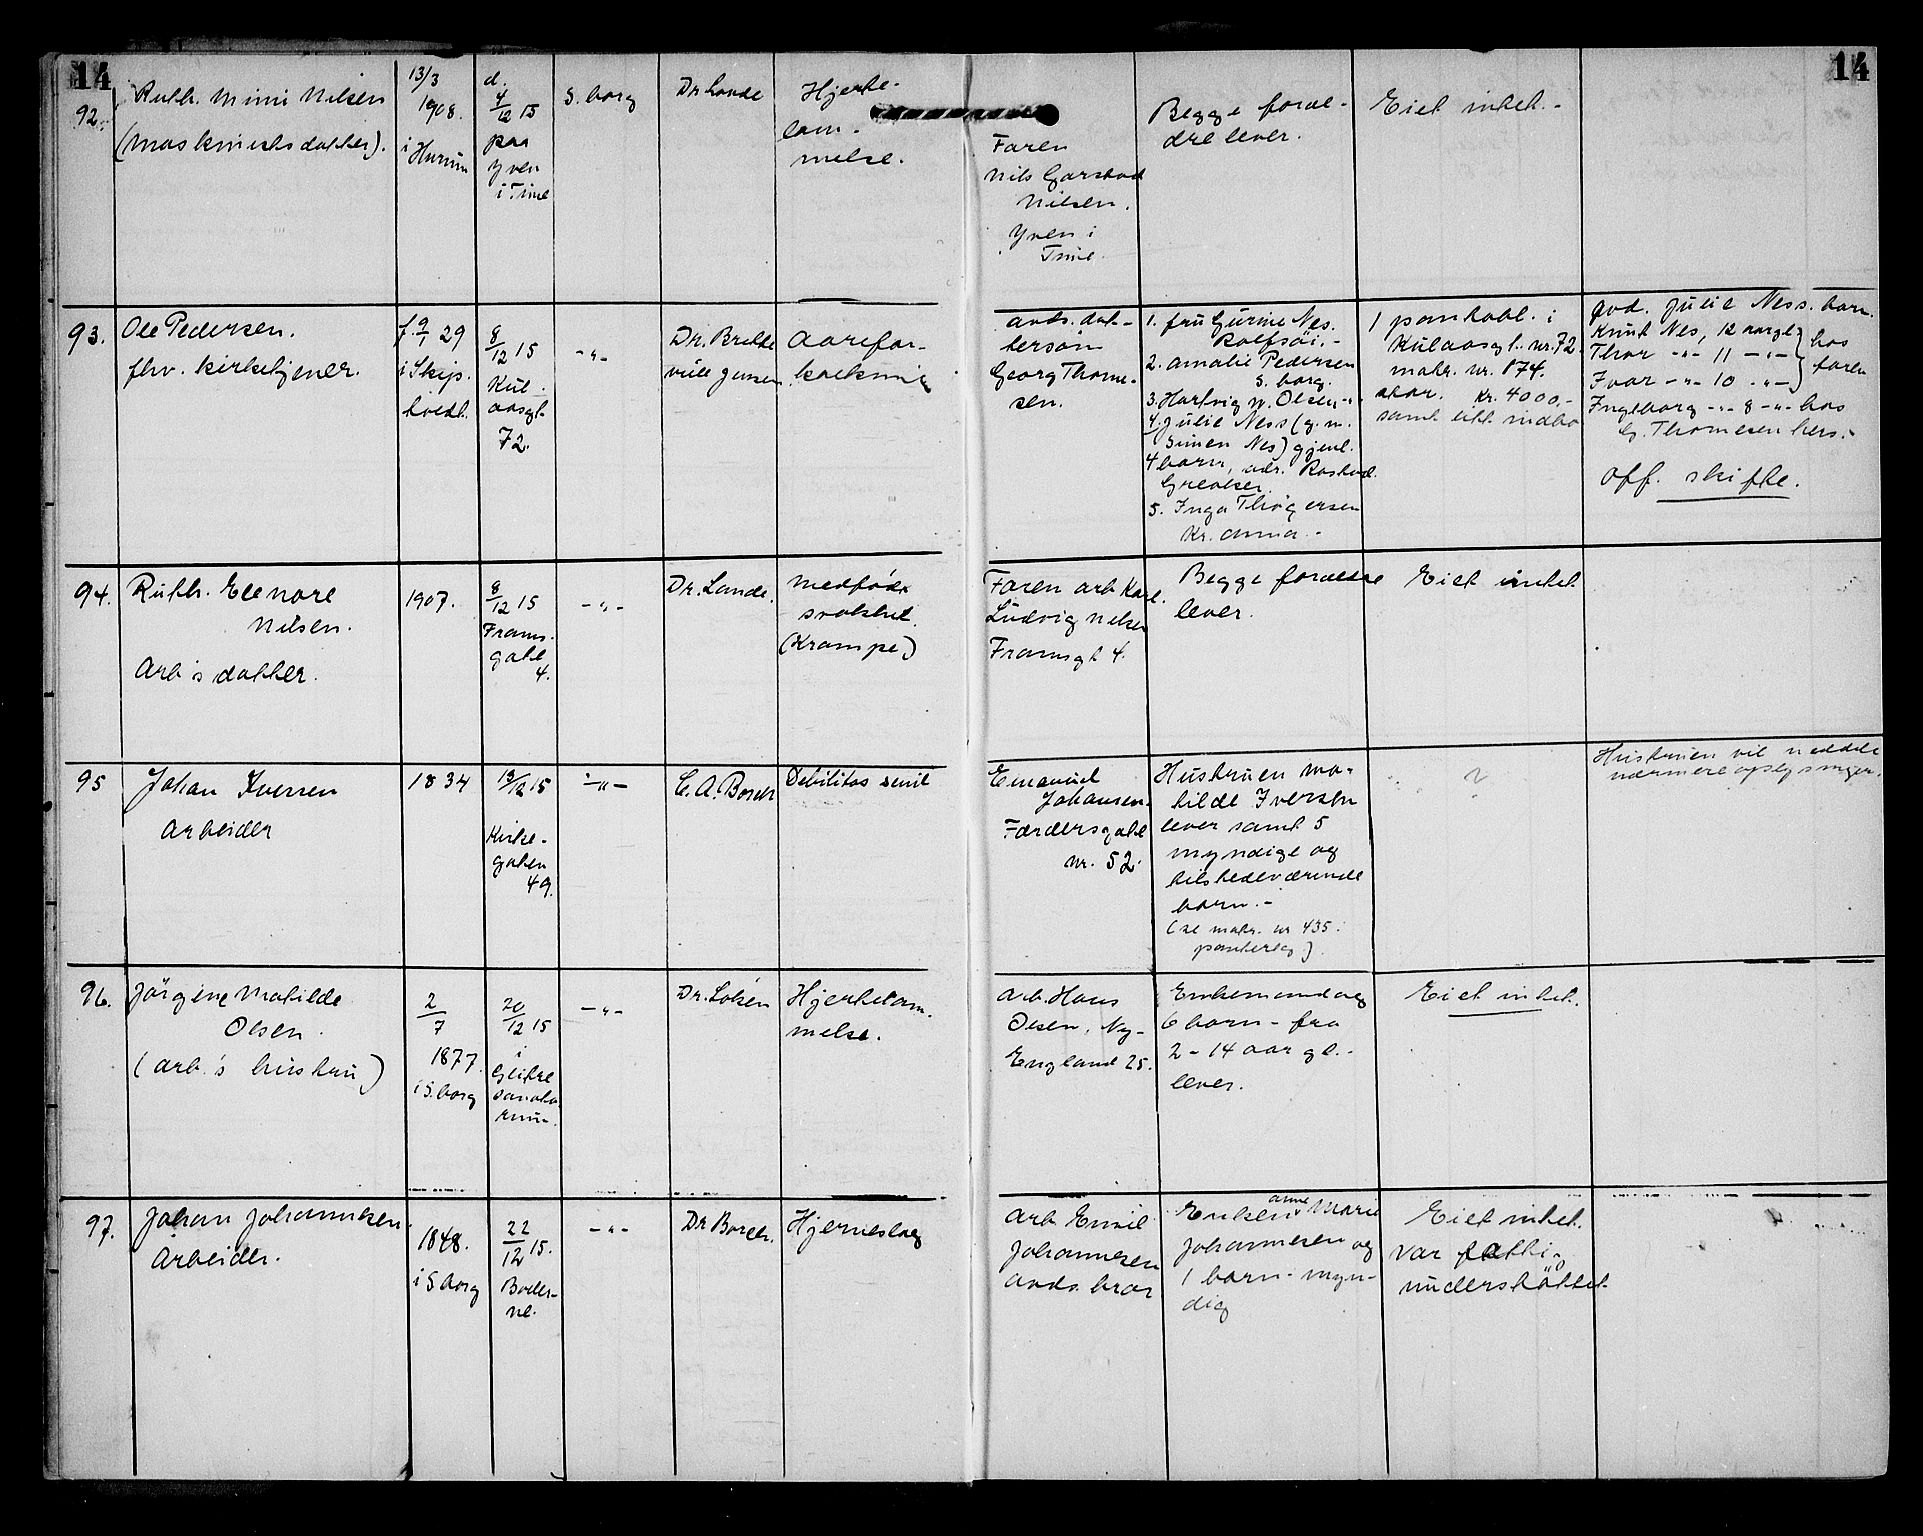 14
14
92.
Ruth. Mimi Nilsen
(maskinistsdatter).
13/3
1908.
i Hurum
d.
4/12 15
paa
Yven
i Tune
S. borg
Dr. Lande
Hjerte-
lam-
melse.
Faren
Nils Garstad
Nilsen.
Yven i
Tune.
Begge foræl-
dre lever.
Eiet intet.-
93.
Ole Pedersen.
fhv. kirketjener.
f. 9/1 29
i Skip-
tvedt.
8/12 15
Kul-
aasgt.
72.
-"-
Dr. Brette
ville Jensen
Aarefor-
kalkning
avds. dat-
tersøn
Georg Thome-
sen.
1. fru Gurine Nes.
Rolfsøi.-
2. Amalie Pedersen
S. borg.
3. Hartvig P. Olsen -"-
4. Julie Ness (g. m.
Simen Nes) gjenl.
4 barn, adr. Rostad.
Greaaker.
5. Inga Thøgersen
Kr. ania.-
1 panteobl. i
Kulaasgt. nr. 72.
matr. nr. 874.
stor. kr. 4000.-
samt litt indbo
Avd. Julie Ness. barn.
Knut Nes, 12 aargl. } hos
Thor -"- 11 -"- } faren
Ivar -"- 10 -"- }
Ingeborg -"- 8 -"- hos
G. Thomesen hers.-
Off. skifte.
94.
Ruth. Elenore
Nilsen.
Arb's datter.
1907.
8/12 15
Frams-
gate
4.
-"-
Dr. Lande.
Medfødt
svakhet.
(Krampe)
Faren arb Karl.
Ludvig Nilsen
Framsgt 4.
Begge forældre
lever.
Eiet intet.
95
Johan Iversen
Arbeider
1834
13/12 15
Kirke-
gaten
49.
-"-
C. A. Borch
Debilitas senil
Emanuel
Johansen.
Færdersgate
nr. 52.
Hustruen Ma-
tilde Iversen
lever samt 5
myndige og
tilstedeværende
barn.-
(se matr. nr 435.
panterreg)
?
Hustruen vil meddele
nærmere oplysninger.
96.
Jörgine Matilde
Olsen.
(arb.'s hustru)
2/7
1877.
i S. borg
20/12 15
i
Glitre
Sanato
rium.
-"-
Dr. Lokén
Hjertelam-
melse.
Arb. Hans
Olsen, Ny-
England 25.
Enkemand og
6 barn - fra
2 - 14 aar gl.-
lever.
Eiet intet.
97.
Johan Johannesen.
Arbeider.
1848.
i S borg
22/12 15.
Boder-
ne.
-"-
Dr Borch.
Hjerneslag
Arb Emil
Johannesen
avds. bror
Enken Anne Marie
Johannesen og
1 barn - myn-
dig
Eiet intet.
Var fatti-
understöttet.